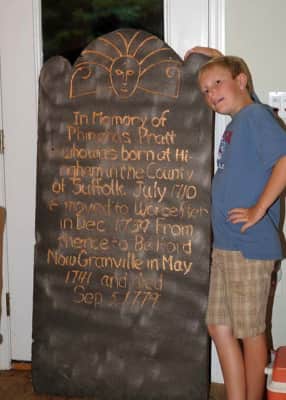 In Memory of
Phinehas Pratt
who was born at Hi-
ngham in the County
of Suffolk July 1710
& moved to Worcester
in Dec 1739 From
thence to Bedford
Now Granville in May
1741 and died
Sep 5 1779